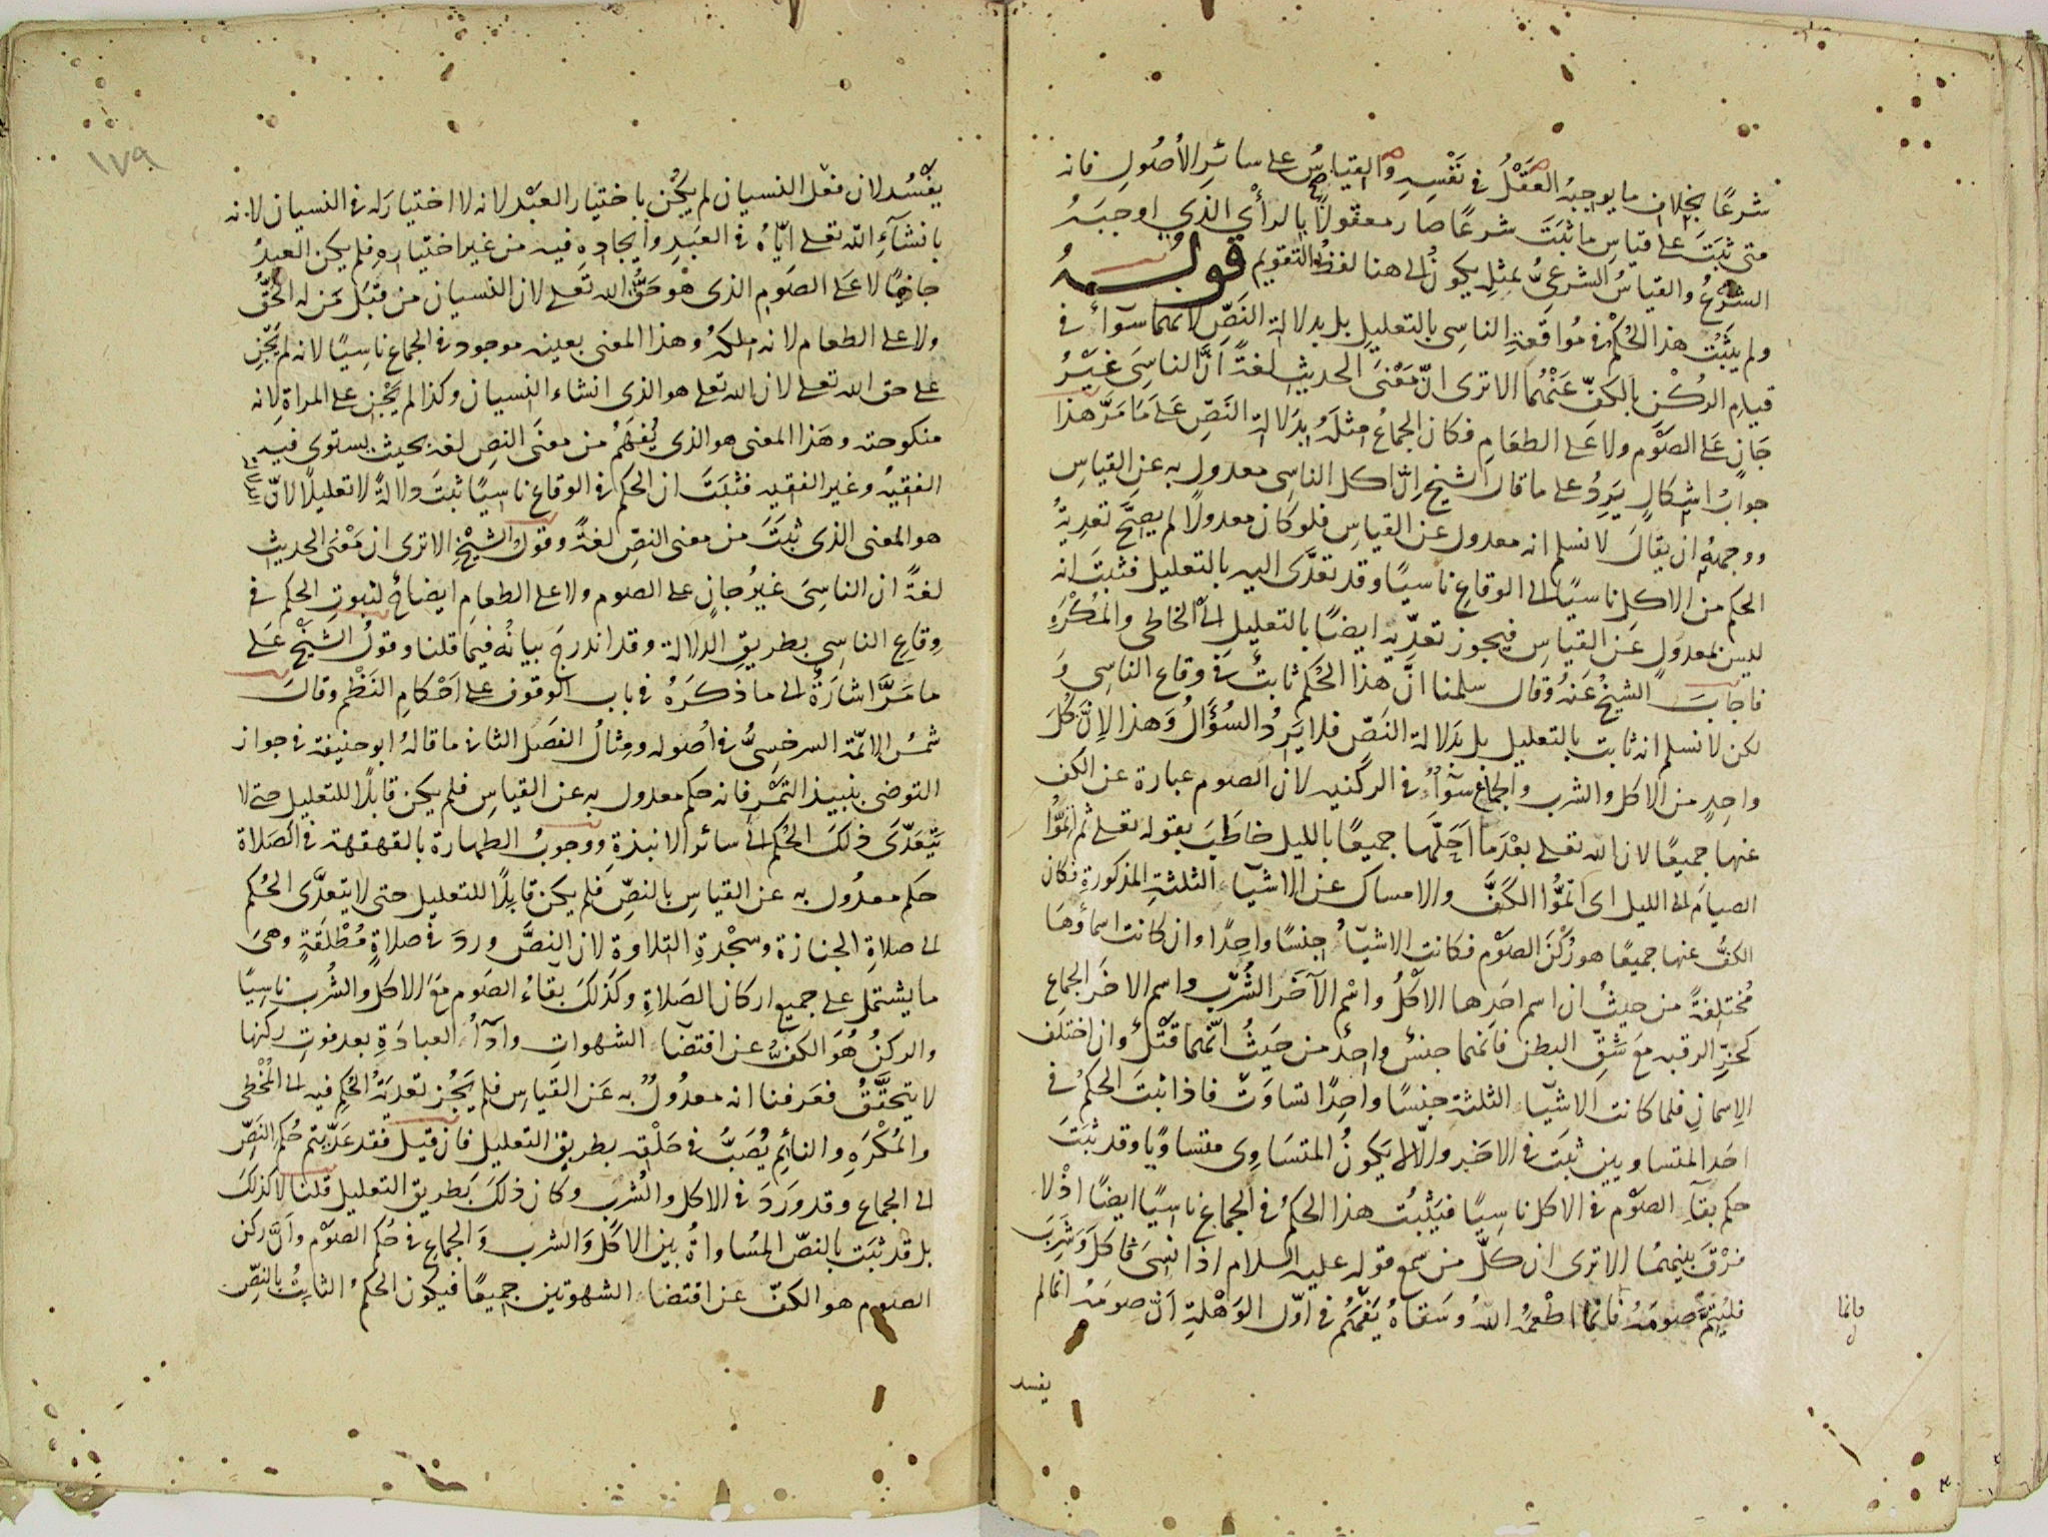 شرعًا بخلاف ما يوجبه العقل في نفسه والقياس على سائر الأصول فانه
متى ثبت على قياس ما ثبت شرعًا صار معقولًا بالرأي الذي اوجبه
الشرع والقياس الشرعي بمثله يكون الى هنا لفظ التقويم قوله
ولم يثبت هذا الحكم في مواقعة الناسي بالتعليل بل بدلالة النص لانهما سوآء في
قيام الركن بالكف عنهما الا ترى ان معنى الحديث لغة ان الناسى غير
جان على الصوم ولا على الطعام فكان الجماع مثله بدلالة النص على ما مر هذا
جواب اشكال يرد على ما قال الشيخ ان اكل الناسي معدول به عن القياس
ووجهه ان يقال لا نسلم انه معدول عن القياس فلو كان معدولا لم يصح تعدية
الحكم من الاكل ناسيًا الى الوقاع ناسيًا وقد تعدى اليه بالتعليل فثبت انه
ليس بمعدول عن القياس فيجوز تعديه ايضًا بالتعليل الى الخاطى والمكره
فاجاب الشيخ عنه وقال سلمنا ان هذا الحكم ثابت في وقاع الناسي و
لكن لا نسلم انه ثابت بالتعليل بل بدلالة النص فلا يرد السؤال وهذا لان كل
واحد من الاكل والشرب والجماع سوآء في الركنيه لان الصوم عبارة عن الكف
عنها جميعًا لان الله تعلى بعد ما احلها جميعًا بالليل خاطب بقوله تعلى ثم اتموا
الصيام الى الليل اى اتموا الكف والامساك عن الاشيآء الثلثة المذكورة فكان
الكف عنها جميعًا هو ركن الصوم فكانت الاشيآء جنسًا واحدًا وان كانت اسماؤها
مختلفة من حيث ان اسم احدها الاكل واسم الآخر الشرب واسم الاخر الجماع
كحز الرقبه مع شق البطن فانهما جنس واحد من حيث انهما قتل وان اختلف
الاسمان فلما كانت الاشيآء الثلثة جنسًا واحدًا تساوت فاذا ثبت الحكم في
احد المتساويين ثبت في الاخر والا لا يكون المتساوى متساويا وقد ثبت
حكم بقآء الصوم في الاكل ناسيًا فيثبت هذا الحكم في الجماع ناسيًا ايضًا اذ لا
فرق بينهما الا ترى ان كل من سمع قوله عليه السلام اذا نسى فاكل وشرب
فليتم صومه فانما اطعمه الله وسقاه يفهم في اول الوهلة ان صومه انما لم
فانما
يفسد
١٧٩
يفسد لان فعل النسيان لم يكن باختيار العبد لانه لا اختيار له في النسيان لانه
بانشآء الله تعلى اياه في العبد وايجاده فيه من غير اختياره فلم يكن العبد
جانيًا لا على الصوم الذى هو حق الله تعلى لان النسيان من قبل من له الحق
ولا على الطعام لانه ملكه وهذا المعنى بعينه موجود في الجماع ناسيًا لانه لم يجن
على حق الله تعلى لان الله تعلى هو الذى انشاء النسيان وكذا لم يجن على المراة لانه
منكوحته وهذا المعنى هو الذى يفهم من معنى النص لغة بحيث يستوى فيه
الفقيه وغير الفقيه فثبت ان الحكم في الوقاع ناسيًا ثبت دلالة لا تعليلا لان
هو المعنى الذى ثبت من معنى النص لغة وقول الشيخ الا ترى ان معنى الحديث
لغة ان الناسى غير جان على الصوم ولا على الطعام ايضاح لثبوت الحكم في
وقاع الناسى بطريق الدلالة وقد اندرج بيانه فيما قلنا وقول الشيخ على
ما مر اشارة الى ما ذكره في باب الوقوف على احكام النظم وقال
شمس الائمة السرخسي في اصوله ومثال الفصل الثاني ما قاله ابو حنيفة في جواز
التوضى بنبيذ التمر فانه حكم معدول به عن القياس فلم يكن قابلًا للتعليل حتى لا
يتعدى ذلك الحكم الى سائر الانبذة ووجوب الطهارة بالقهقهة في الصلاة
حكم معدول به عن القياس بالنص فلم يكن قابلًا للتعليل حتى لا يتعدى الحكم
الى صلاة الجنازة وسجدة التلاوة لان النص ورد في صلاة مطلقة وهى
ما يشتمل على جميع اركان الصلاة وكذلك بقاء الصوم مع الاكل والشرب ناسيًا
والركن هو الكف عن اقتضآء الشهوات وادآء العبادة بعد فوت ركنها
لا يتحقق فعرفنا انه معدول به عن القياس فلم يجز تعدية الحكم فيه الى المخطى
والمكره والنائم يصب في حلقه بطريق التعليل فان قيل فقد عديتم حكم النص
الى الجماع وقد ورد في الاكل والشرب وكان ذلك بطريق التعليل قلنا لا كذلك
بل قد ثبت بالنص المساواة بين الاكل والشرب والجماع في حكم الصوم وان ركن
الصوم هو الكف عن اقتضاء الشهوتين جميعًا فيكون الحكم الثابت بالنص